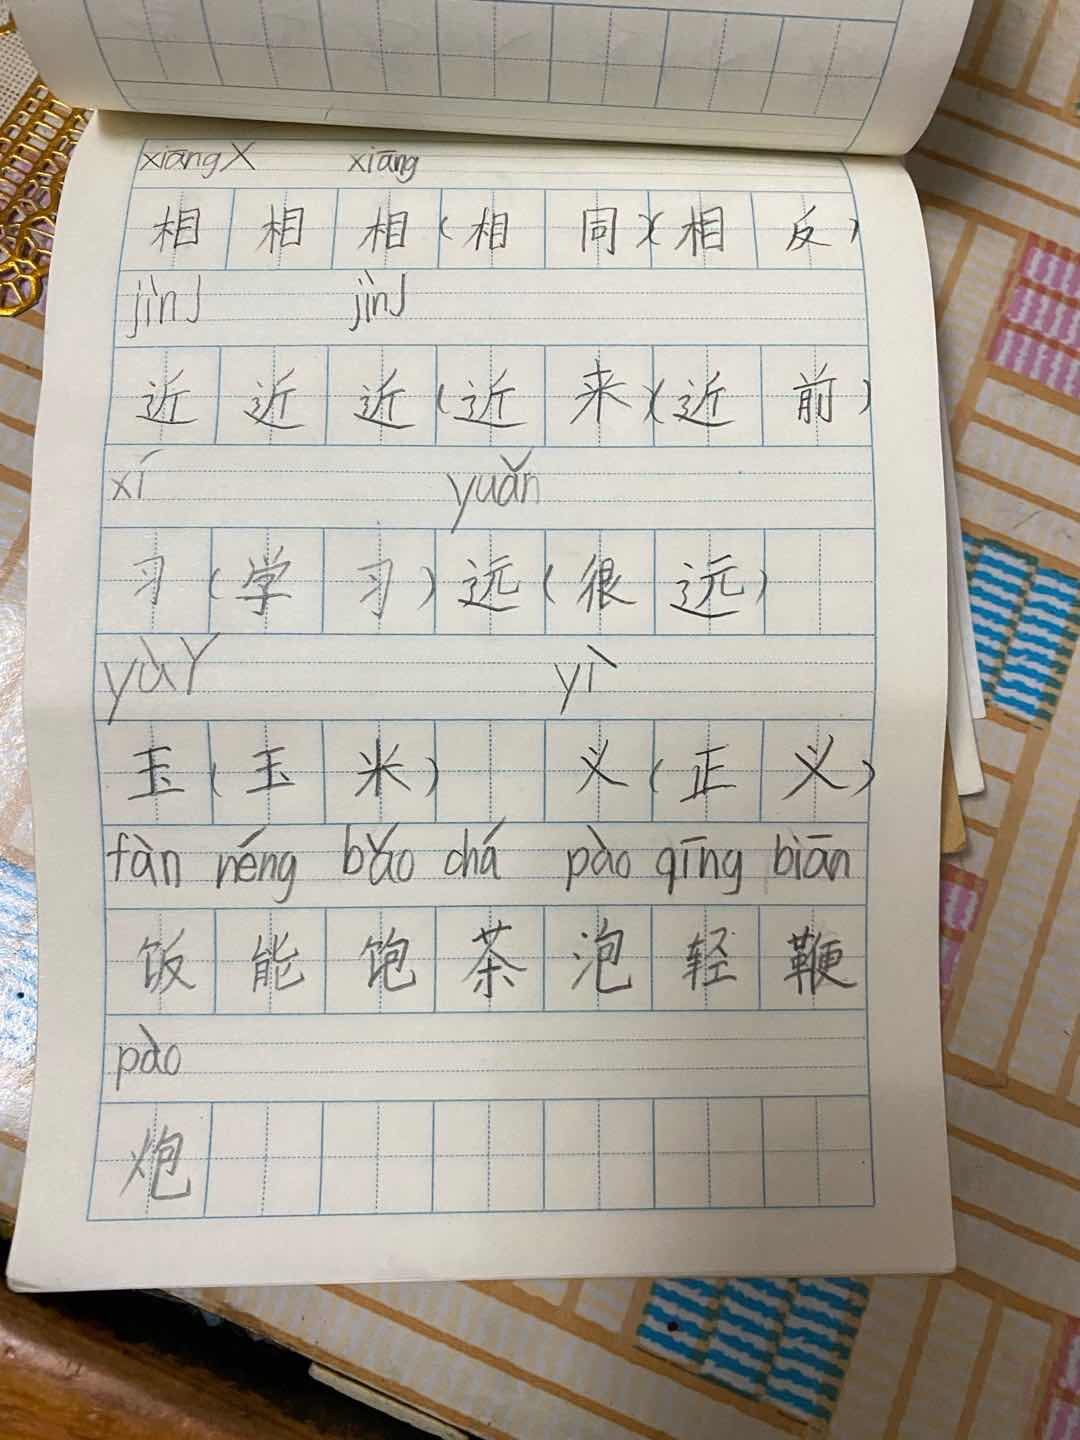 xiāngX xiāng
相 相 相 (相 同)(相 反)
jìnJ jìnJ
近 近 近 (近 来)(近 前)
xí yuǎn
习 (学 习) 远 (很 远)
yùY yì
玉 (玉 米) 义 (正 义)
fàn néng bǎo chá pào qīng biān
饭 能 饱 茶 泡 轻 鞭
pào
炮